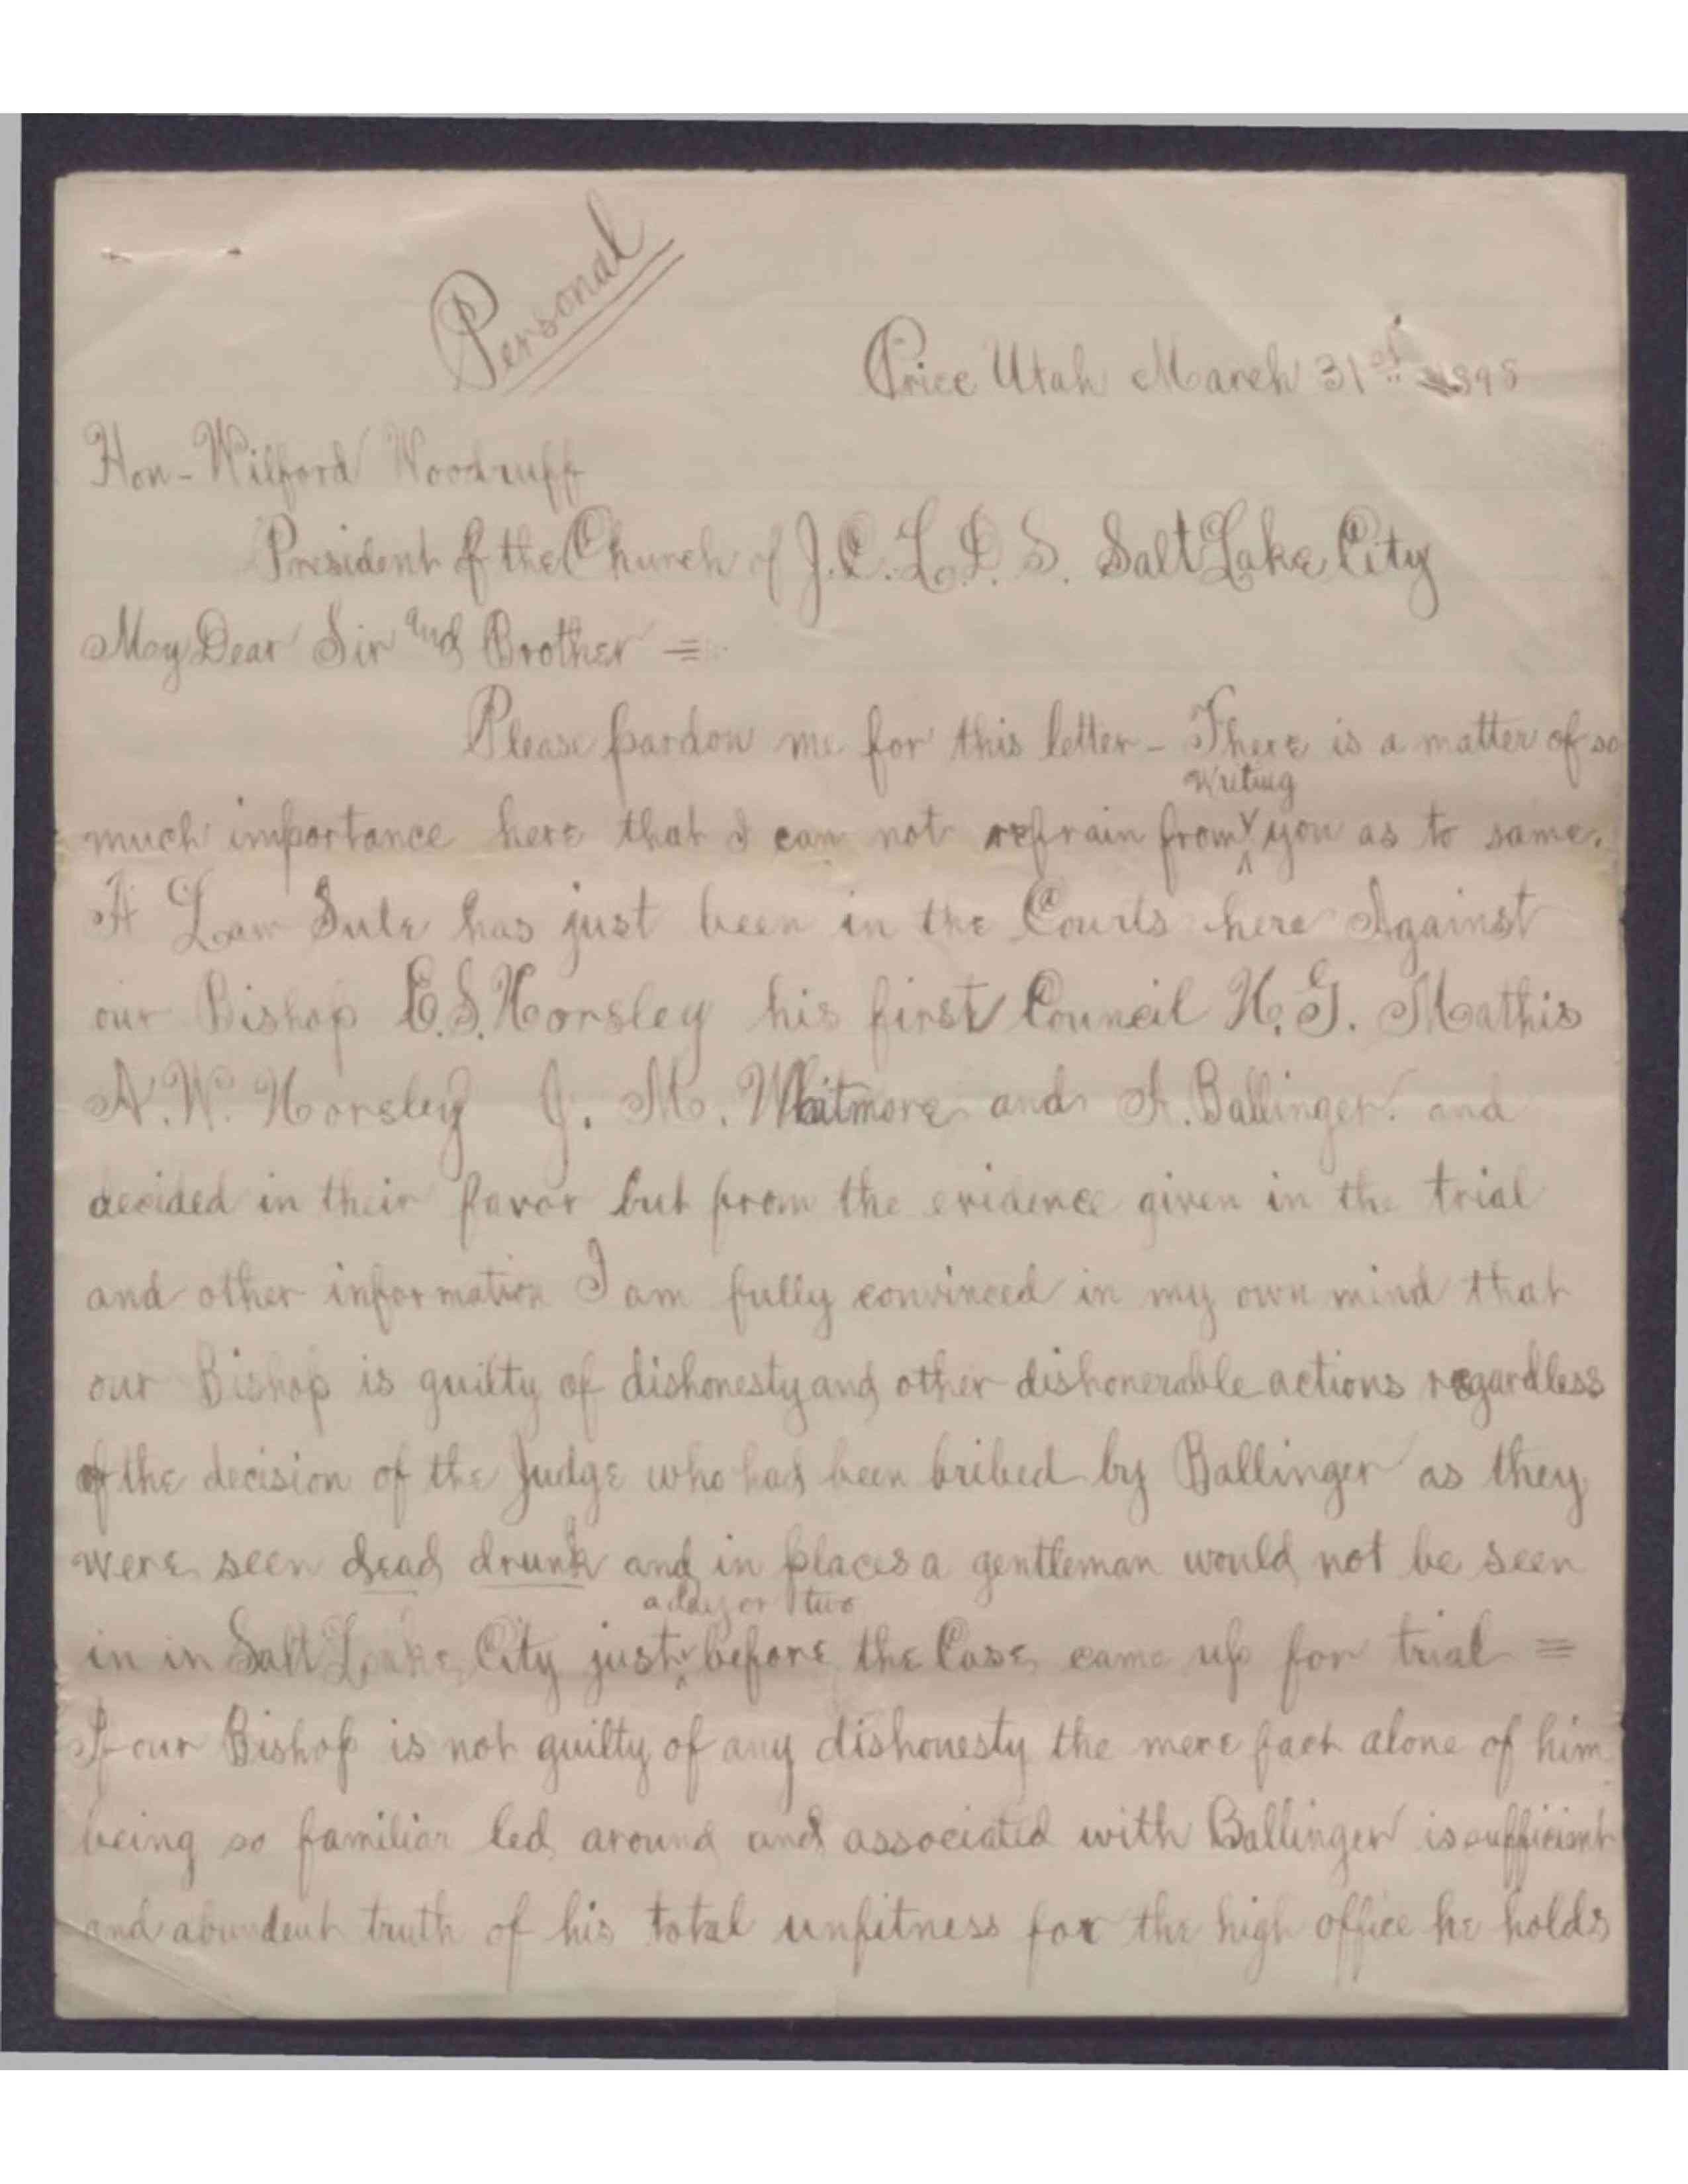 Personal
Price Utah March 31st 1898
Hon - Wilford Woodruff
President of the Church of J. C. L. D. S. Salt Lake City
My Dear Sir and Brother =
Please pardon me for this letter - There is a matter of so
writing
much importance here that I can not refrain from you as to same.
A Law Sute has just been in the Courts here Against
our Bishop E. S. Horsley his first Council H. G. Mathis
N. W. Horsley J. M. Whitmore and A. Ballinger. and
decided in their favor but from the evidence given in the trial
and other information I am fully convinced in my own mind that
our Bishop is guilty of dishonesty and other dishonerable actions regardless
of the decision of the Judge who had been bribed by Ballinger as they
were seen dead drunk and in places a gentleman would not be seen
a day or two
in in Salt Lake City just before the Case came up for trial =
If our Bishop is not guilty of any dishonesty the mere fact alone of him
being so familiar led around and associated with Ballinger is sufficient
and abundent truth of his total unfitness for the high office he holds